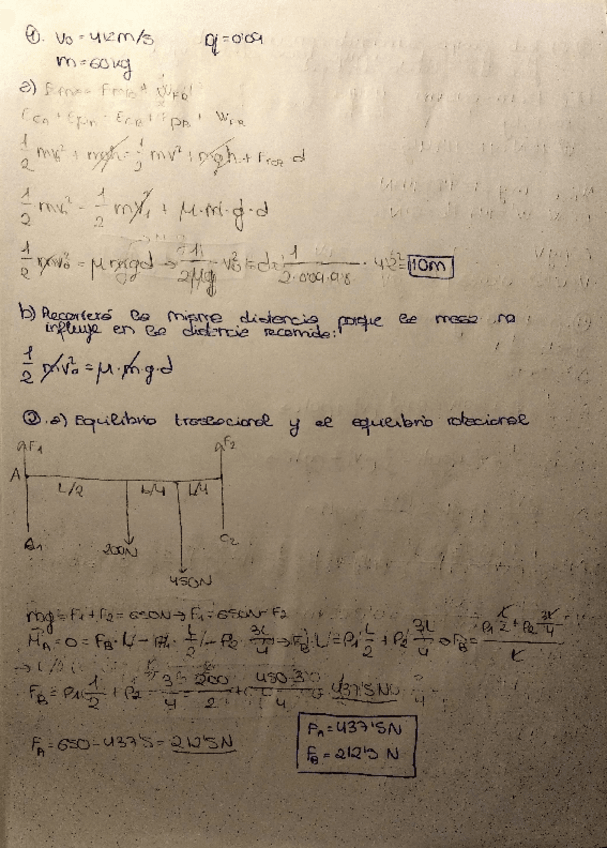 ①. v₀ = 4km/s
m = 60kg
a)
½ mv₀² + mgh = ½ mv² + mgh + Froz d
½ mv₀² = ½ mv² + μ·m·g·d
½ mv₀² = μmgd → 1/2μg · v₀² = d = 1/2·0'09·9'8 · 4'2² = 10m
b) Recorrerá la misma distancia porque la masa no
influye en la distancia recorrida:
½ mv₀² = μ·m·g·d
②. a) Equilibrio traslacional y el equilibrio rotacional
F₁ F₂
A
L/2 L/4 L/4
200N
450N
mg = F₁ + F₂ = 650N → F₁ = 650N - F₂
M_A = 0 = F_B · L - P₁ · L/2 - P₂ · 3L/4 → F_B · L = P₁ L/2 + P₂ 3L/4 → F_B = P₁ L/2 + P₂ 3L/4 / L
F_B = P₁ 1/2 + P₂ 3/4 = 200/2 + 450·3/4 = 437'5N
F_A = 650 - 437'5 = 212'5N
F_A = 437'5N
F_B = 212'5 N